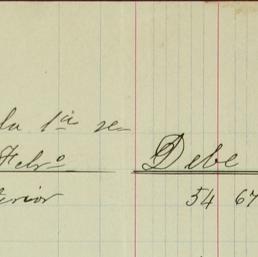 la 1ª se
Febº Debe
terior 54 67